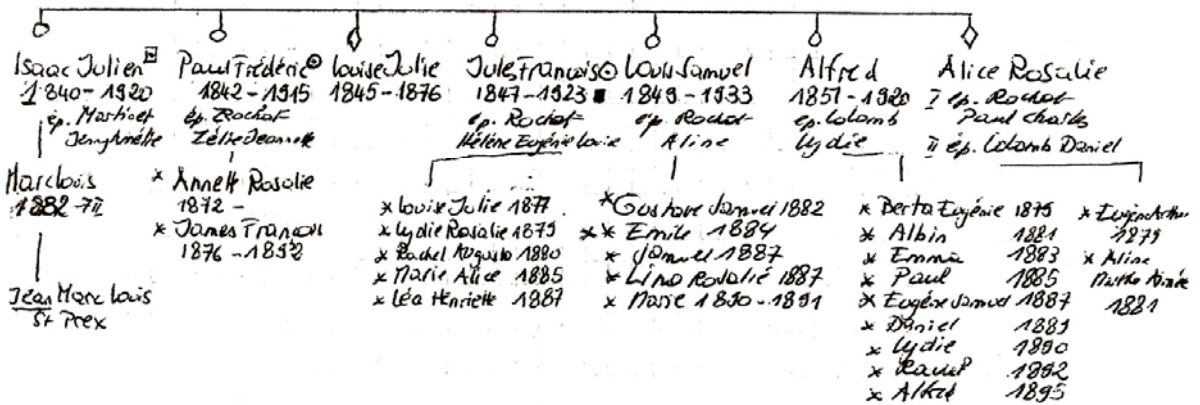 Isaac Julien
1840-1920
ép. Martinet
Jenny Amélie
Marc Louis
1882 - VII
Jean Marc Louis
St Prex
Paul Frédéric
1842-1915
ép. Rochat
Zélie Jeannette
* Annette Rosalie
1872 -
* James François
1876 - 1892
Louise Julie
1845-1876
Jules François
1847-1923
ép. Rochat
Hélène Eugénie Louise
* Louise Julie 1877
* Lydie Rosalie 1879
* Rachel Augusta 1880
* Marie Alice 1885
* Léa Henriette 1887
Louis Samuel
1849-1933
ép. Rochat
Aline
* Gustave Samuel 1882
* * Emile 1884
* Samuel 1887
* Lina Rosalie 1887
* Marie 1890-1891
Alfred
1851-1920
ép. Colomb
Lydie
* Berta Eugénie 1879
* Albin 1881
* Emma 1883
* Paul 1885
* Eugène Samuel 1887
* Daniel 1889
* Lydie 1890
* 1892
* Alfred 1895
Alice Rosalie
I ép. Rochat
Paul Charles
II ép. Colomb Daniel
* Eugène Arthur
1879
* Aline
Martha Aimée
1881